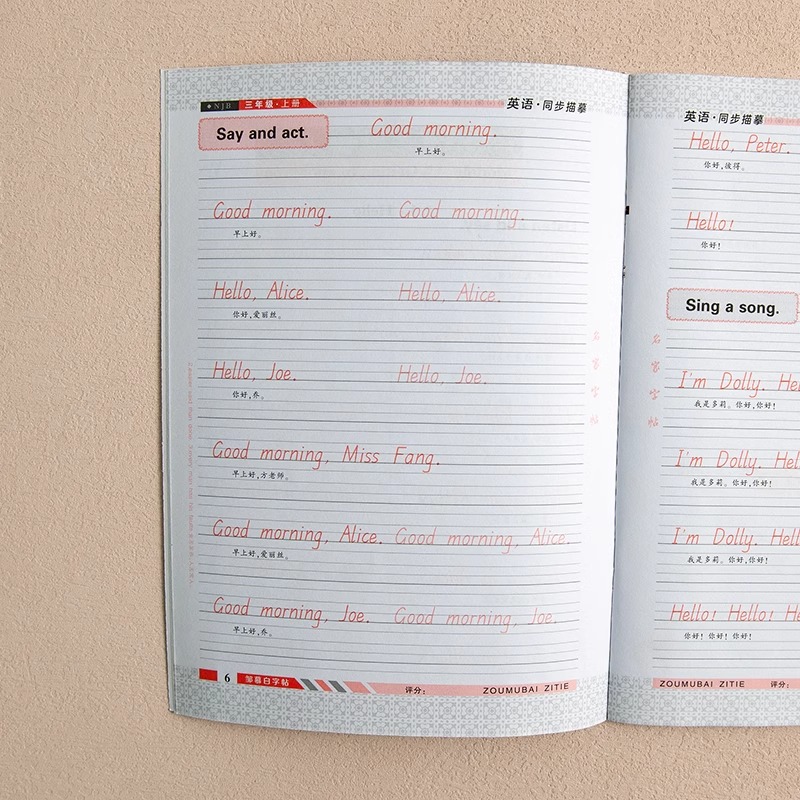 NJB 三年级·上册 英语·同步描摹
Say and act. Good morning.
早上好。
Good morning. Good morning.
早上好。
Hello, Alice. Hello, Alice.
你好,爱丽丝。
Hello, Joe. Hello, Joe.
你好,乔。
Good morning, Miss Fang.
早上好,方老师。
Good morning, Alice. Good morning, Alice.
早上好,爱丽丝。
Good morning, Joe. Good morning, Joe.
早上好,乔。
名家字帖
6 邹慕白字帖 评分: ZOUMUBAI ZITIE
英语·同步描摹
Hello, Peter.
你好,彼得。
Hello!
你好!
Sing a song.
I'm Dolly. Hel
我是多莉。你好,你好!
I'm Dolly. Hel
我是多莉。你好,你好!
I'm Dolly. Hell
我是多莉。你好,你好!
Hello! Hello! He
你好! 你好! 你好!
名家字帖
ZOUMUBAI ZITIE 评分: